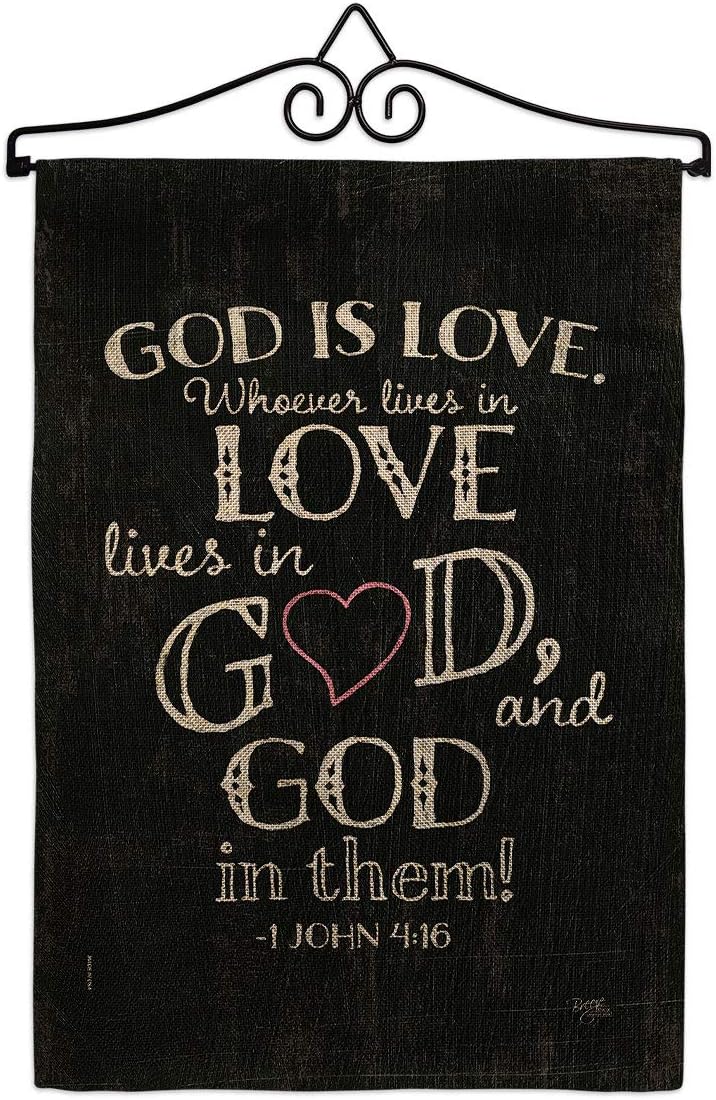 GOD IS LOVE.
Whoever lives in
LOVE
lives in
G D,
and
GOD
in them!
-1 JOHN 4:16
MADE IN USA
Breeze